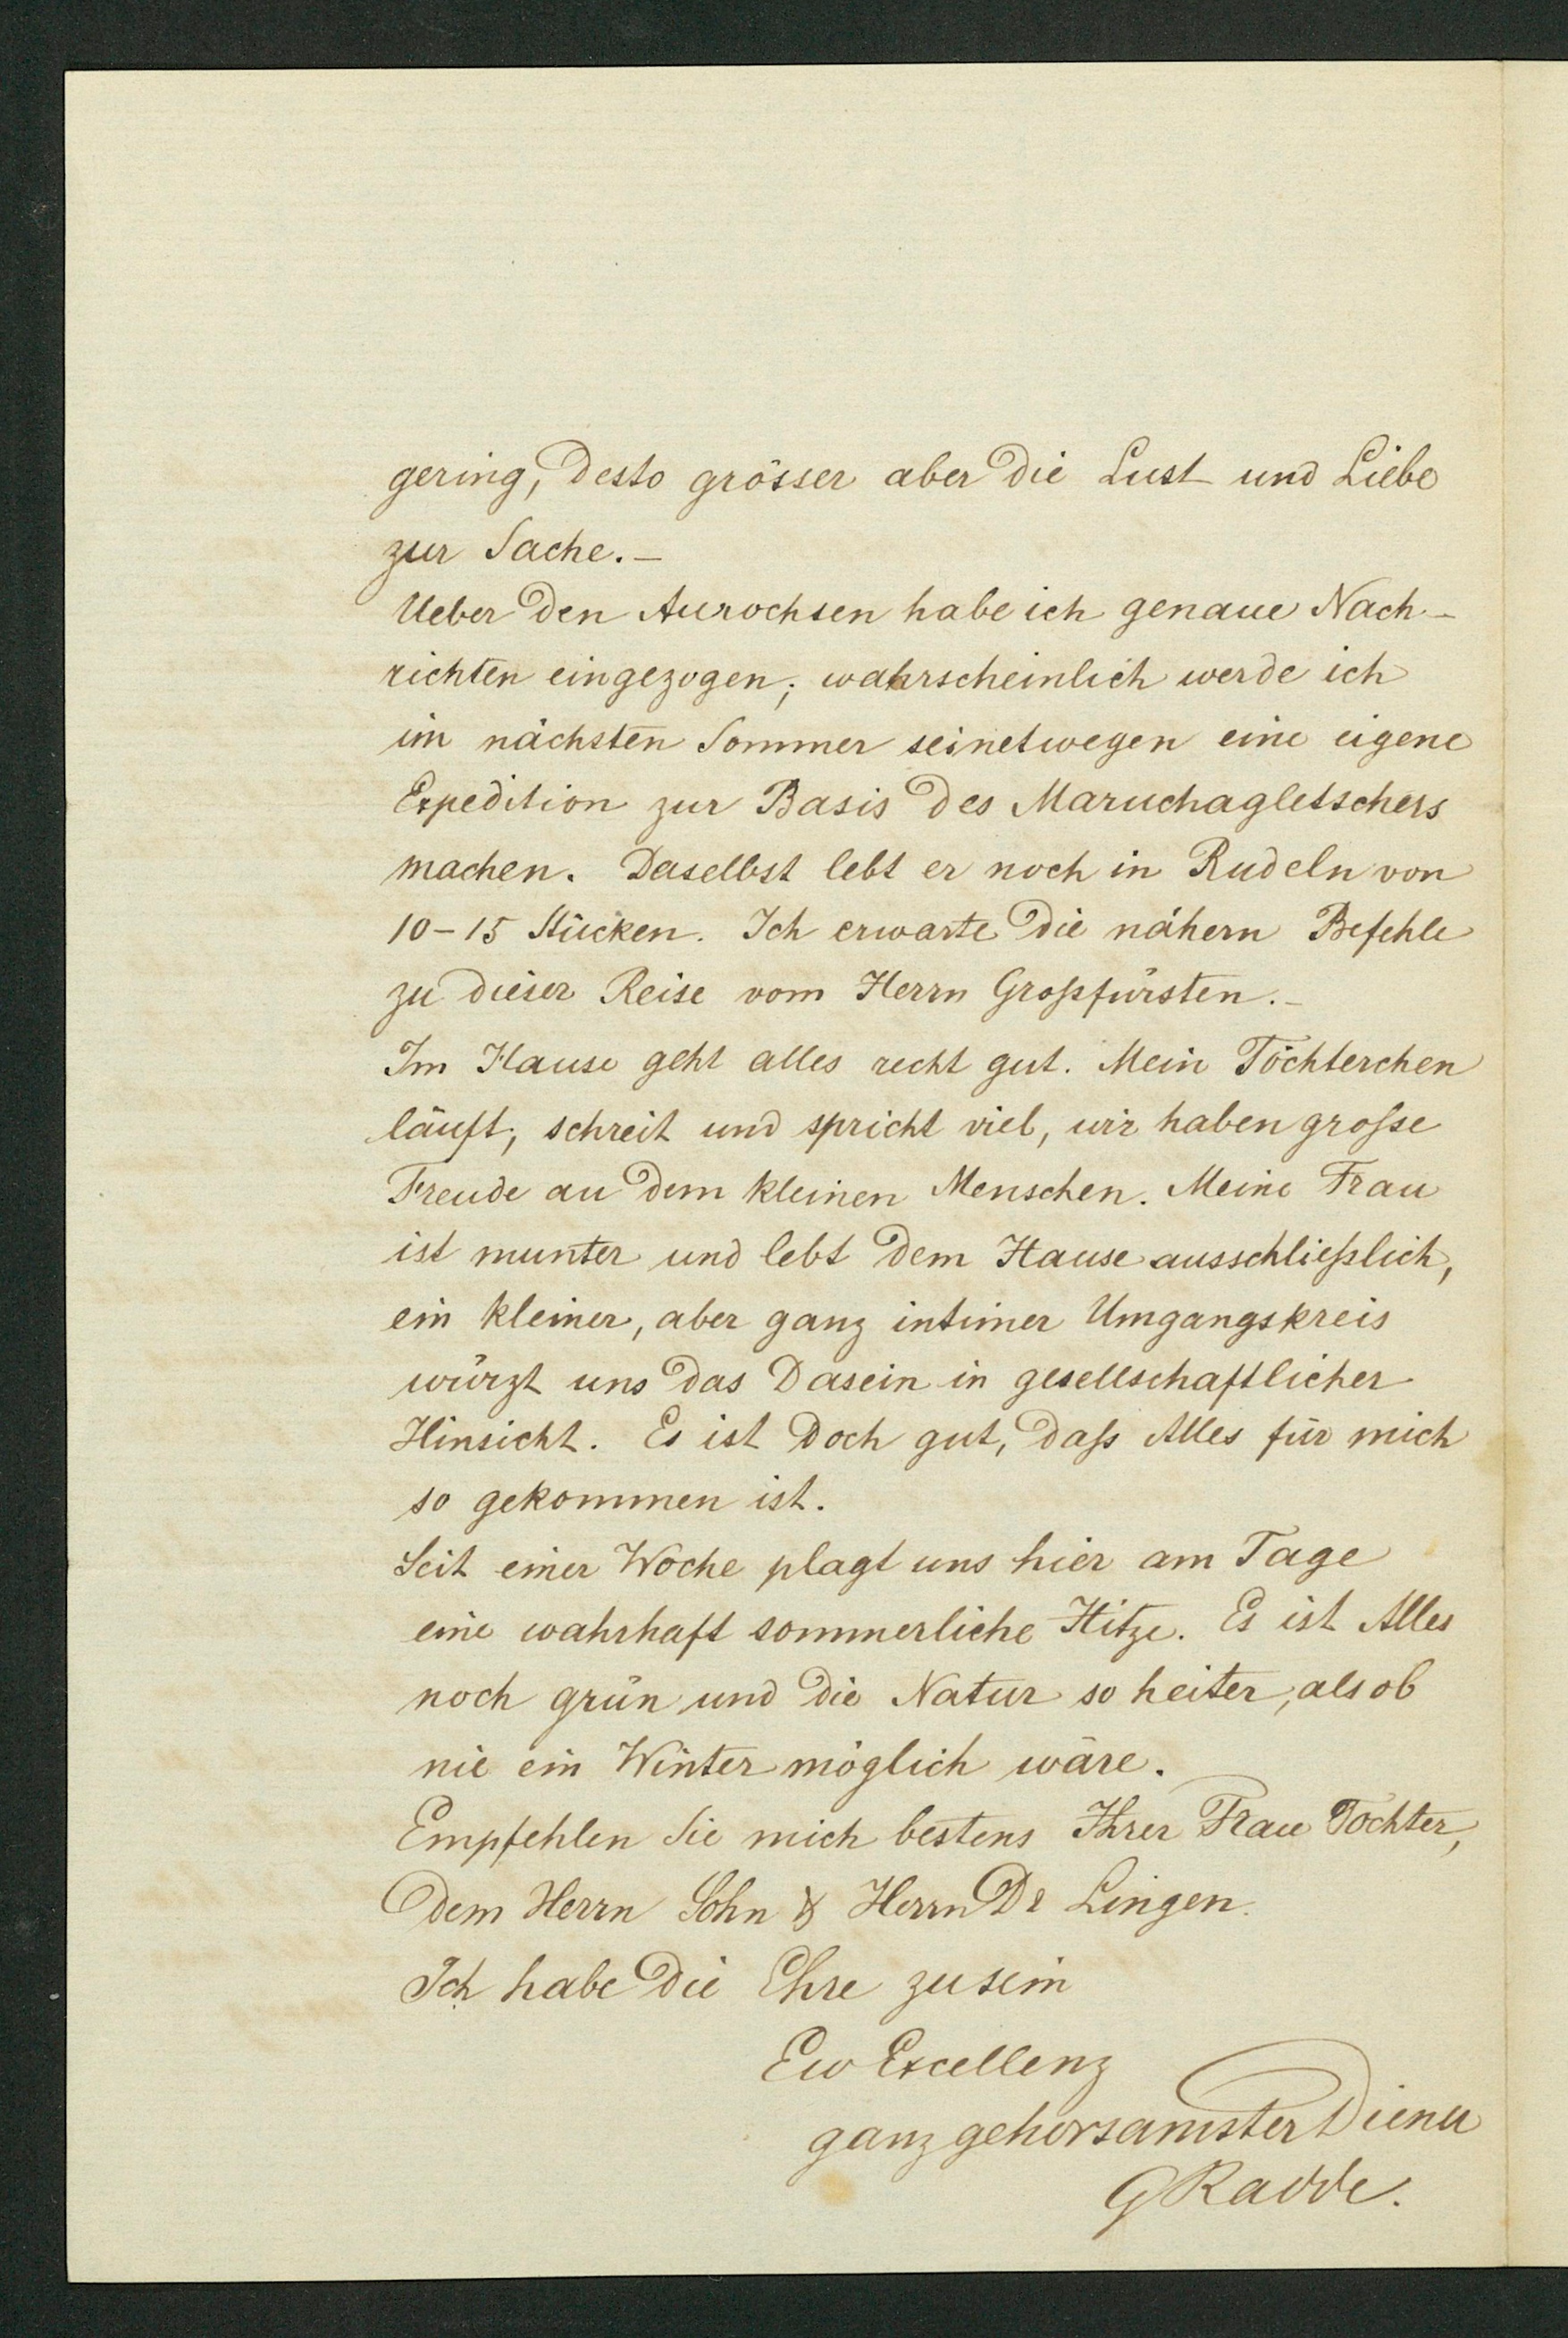 gering, desto grösser aber die Lust und Liebe
zur Sache.–
Ueber den Aurochsen habe ich genaue Nach-
richten eingezogen; wahrscheinlich werde ich
im nächsten Sommer seinetwegen eine eigene
Expedition zur Basis des Maruchagletschers
machen. Daselbst lebt er noch in Rudeln von
10–15 Stücken. Ich erwarte die nähern Befehle
zu dieser Reise vom Herrn Großfürsten.–
Im Hause geht alles recht gut. Mein Töchterchen
läuft, schreit und spricht viel, wir haben große
Freude an dem kleinen Menschen. Meine Frau
ist munter und lebt dem Hause ausschließlich,
ein kleiner, aber ganz intimer Umgangskreis
würzt uns das Dasein in gesellschaftlicher
Hinsicht. Es ist doch gut, daß Alles für mich
so gekommen ist.
Seit einer Woche plagt uns hier am Tage
eine wahrhaft sommerliche Hitze. Es ist Alles
noch grün und die Natur so heiter, als ob
nie ein Winter möglich wäre.
Empfehlen Sie mich bestens Ihrer Frau Tochter,
dem Herrn Sohn & Herrn Dr Lingen.
Ich habe die Ehre zu sein
Ew Excellenz
ganz gehorsamster Diener
G Radde.